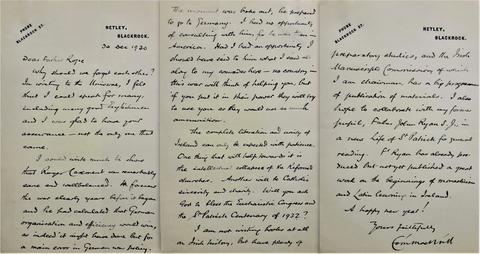 PHONE
BLACKROCK 85.
NETLEY,
BLACKROCK.
30 Dec 1930
Dear Father Rope
Why should we forget each other?
In writing to the Universe, I felt
that I could speak for many,
including many good Englishmen
and I was glad to have your
assurance — not the only one that
came.
I could wish much to show
that Roger Casement was remarkably
sane and wellbalanced. He foresaw
the war clearly years before it began
and he had calculated that German
organisation and efficiency would win,
as indeed it might have done but for
a main error in German war policy.
The moment war broke out, he prepared
to go to Germany. I had no opportunity
of consulting with him, for he was then in
America. Had I had an opportunity I
should have said to him what I said all
along to my comrades here — no country in
this war will think of helping you. And
if you put it in their power they will try
to use you as they would use so much
ammunition.
The complete liberation and unity of
Ireland can only be expected with patience.
One thing that will help towards it is
the intellectual collapse of the Reformed
churches. Another will be Catholic
sincerity and charity. Will you ask
God to bless the Eucharistic Congress and
the St Patrick Centenary of 1932?
I am not writing books at all
on Irish history, but have plenty of
PHONE
BLACKROCK
NETLEY,
BLACKROCK.
preparatory studies, and the Irish
Manuscripts Commission of which
I am chairman has a big programme
of publication of materials. I also
hope to collaborate with my former
pupil, Father John Ryan S.J., in
a new Life of St Patrick for general
reading. Fr Ryan has already pro-
duced but not yet published a great
work on the beginnings of monasticism
and Latin learning in Ireland.
A happy new year!
Yours faithfully,
Eoin MacNeill